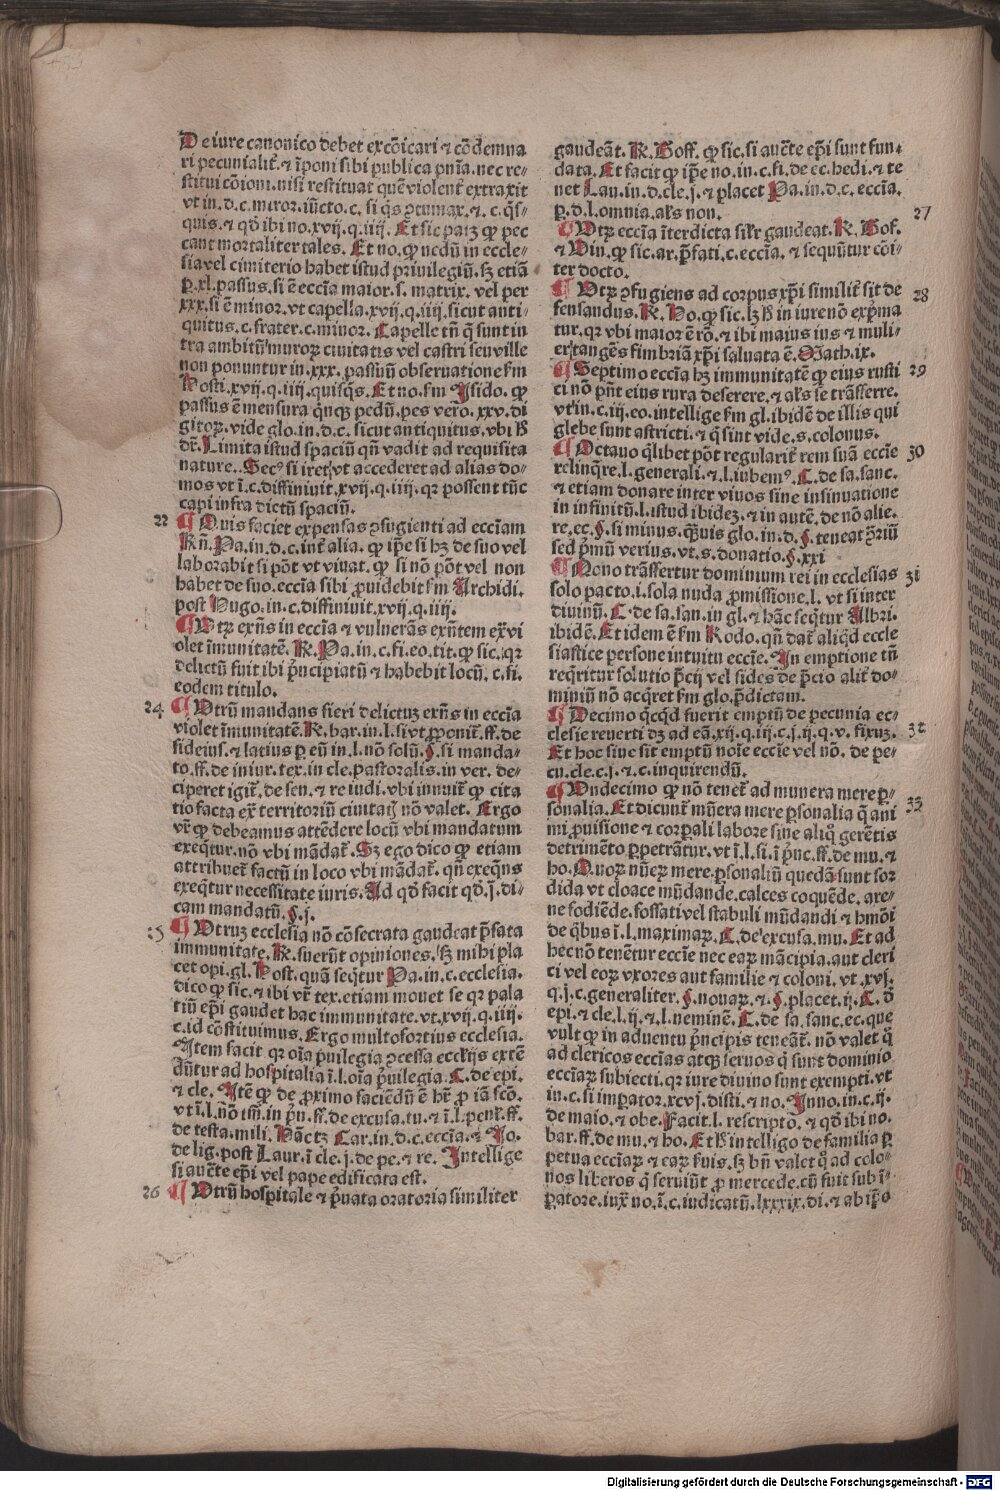 De iure canonico debet excōicari ⁊ cōdemna
ri pecunialiť.⁊ īponi sibi publica pnīa.nec re-
stitui cōioni.nisi restituat quē violenť extraxit
vt in.d.c.miror.iūcto.c. si q̄s ꝯtumax.⁊.c.q̄s-
quis.⁊ qď ibi no.xvij.q.iiij. Et sic patꝫ ꝙ pec
cant mortaliter tales. Et no.ꝙ nedū in eccle-
sia vel cimiterio habet istud privilegiū.sꝫ etiā
ꝑ.xl.passus.si ē ecclīa maior.s. matrix. vel per
xxx.si ē minor.vt capella.xvij.q.iiij.sicut anti-
quitus.c.frater.c.minor. Capelle tñ q̄ sunt in
tra ambitū muroꝝ ciuitatis vel castri seu ville
non ponuntur in.xxx.passuū obseruatione fm
Hosti.xvij.q.iiij.quisq̄s. Et no.fm Isido. ꝙ
passus ē mensura q̄nqꝫ pedū.pes vero.xxv.di
gitoꝝ.vide glo.in.d.c. sicut antiquitus.vbi ħ
dť.Limita istud spaciū qñ vadit ad requisita
nature..Sec⁹ si iret vt accederet ad alias do-
mos vt ī.c.diffiniuit.xvij.q.iiij.qꝛ possent tūc
capi infra dictū spaciū.
22 ¶ Quis faciet expensas ꝯfugienti ad ecclīam
Rñ.Pa.in.d.c.inť alia. ꝙ ip̄e si hꝫ de suo vel
laborabit si pōt vt viuat. ꝙ si nō pōt vel non
habet de suo.ecclīa sibi ꝓuidebit fm Archidi.
post Hugo.in.c.diffiniuit.xvij.q.iiij.
¶ Vtꝝ exñs in ecclīa ⁊ vulnerās exñtem ex̄ vi
olet īmunitatē. R.Pa.in.c.fi.eo.tit.ꝙ sic.qꝛ
delictū fuit ibi p̄ncipiatū ⁊ habebit locū. c.fi.
eodem titulo.
24 ¶ Vtrū mandans fieri delictuꝫ exñs in ecclīa
violet īmunitatē.R.bar.in.l.si vt ꝓponiť.ff.de
fideius.⁊ latius ꝑ eū in.l.nō solū.§.si manda-
to.ff.de iniur.tex.in cle.pastoralis.in ver. de-
ciperet igiť.de sen.⁊ re iudi.vbi innuiť ꝙ cita
tio facta ex̄ territoriū ciuitatꝭ nō valet. Ergo
vř ꝙ debeamus attēdere locū vbi mandatum
exeq̄tur.nō vbi mādať.Sꝫ ego dico ꝙ etiam
attribueť factū in loco vbi mādať. qñ exeq̄ns
exeq̄tur necessitate iuris.Ad qď facit qď.j.di-
cam mandatū.§.j.
25 ¶ Vtruꝫ ecclesia nō cōsecrata gaudeat p̄fata
immunitate.R.fuerūt opiniones.sꝫ mihi pla
cet opi.gl. Host.quā seq̄tur Pa.in.c.ecclesia.
dico ꝙ sic.⁊ ibi vř tex.etiam mouet se qꝛ pala
tiū ep̄i gaudet hac immunitate.vt.xvij.q.iiij.
c.id cōstituimus.Ergo multofortius ecclesia.
Item facit qꝛ oīa p̄uilegia ꝯcessa eccliꝭs extē
dūtur ad hospitalia ī.l.oīa p̄uilegia.C.de epi.
⁊ cle. Itē ꝙ de ꝓximo faciēdū ē hř ꝓ iā fcō.
vt ī.l.nō tm̄.in p̄n.ff.de excusa.tu.⁊ ī.l.penť.ff.
de testa.mili. Hāctꝫ Car.in.d.c.ecclīa.⁊ Jo.
de lig.post Laur.ī cle.j.de pe.⁊ re. Intellige
si auctē ep̄i vel pape edificata est.
26 ¶ Vtrū hospitale ⁊ p̄uata oratoria similiter
gaudeāt. R. Goff. ꝙ sic.si auctē ep̄i sunt fun-
data. Et facit ꝙ ip̄e no.in.c.fi.de ec.hedi.⁊ te
net Lau.in.d.cle.j.⁊ placet Pa.in.d.c.ecclīa.
ꝑ.d.l.omnia.al̄s non. 27
¶ Vtꝝ ecclīa īterdicta sil̄r gaudeat.R. Gof.
⁊ Vin.ꝙ sic.ar.p̄fati.c.ecclīa. ⁊ sequūtur cōi-
ter docto.
¶ Vtꝝ ꝯfugiens ad corpus xp̄i similiť sit de 28
fensandus.R.Ho.ꝙ sic.lꝫ ħ in iure nō exp̄ma
tur.qꝛ vbi maior ē rō.⁊ ibi maius ius ⁊ muli-
er tangēs fimbriā xp̄i saluata ē.Math.ix.
¶ Septimo ecclīa hꝫ immunitatē ꝙ eius rusti 29
ci nō pn̄t eius rura deserere.⁊ al̄s se trāsferre.
vt in.c.iij.eo.intellige fm gl.ibidē de illis qui
glebe sunt astricti.⁊ q̄ sint vide.s.colonus.
¶ Octauo q̄libet pōt regulariť rem suā ecclīe 30
relinq̄re.l.generali.⁊.l.iubem⁹.C.de sa.sanc.
⁊ etiam donare inter viuos sine insinuatione
in infinitū.l.istud ibideꝫ.⁊ in autē.de nō alie.
re.ec.§.si minus.q̄uis glo.in.d.§.teneat ꝯriū
sed p̄mū verius.vt.s.donatio.§.xxi
¶ Nono trāsfertur dominium rei in ecclesias 31
solo pacto.i.sola nuda ꝓmissione.l. vt si inter
diuinū. C.de sa.san.in gl.⁊ hāc seq̄tur Albri.
ibidē.Et idem ē fm Rodo.qñ dať aliq̄d eccle
siastice persone intuitu ecclīe. In emptione tñ
req̄ritur solutio p̄cij vel fides de p̄cio aliť do-
miniū nō acq̄ret fm glo.p̄dictam.
¶ Decimo q̄cq̄d fuerit emptū de pecunia ec- 32
clesie reuerti dꝫ ad eā.xij.q.iij.c.j.ij.q.v. fixuꝫ.
Et hoc siue sit emptū noīe ecclīe vel nō. de pe-
cu.cle.c.j.⁊.c.inquirendū.
¶ Vndecimo ꝙ nō teneť ad munera mere ꝑ- 33
sonalia.Et dicunť mūera mere ꝑsonalia q̄ ani
mi ꝓuisione ⁊ corꝑali labore sine aliq̄ gerētis
detrimēto ꝑpetrātur.vt ī.l.si.ī p̄nc.ff.de mu.⁊
ho.Quoꝝ nūeꝝ mere ꝑsonaliū quedā sunt sor
dida vt cloace mūdande.calces coquēde.are-
ne fodiēde.fossati vel stabuli mūdandi ⁊ hmōi
de q̄bus ī.l.maximaꝝ.C.de excusa.mu. Et ad
hec nō tenētur ecclīe nec eaꝝ mācipia.aut cleri
ci vel eoꝝ vxores aut familie ⁊ coloni. vt.xvj.
q.j.c.generaliter.§.nouaꝝ.⁊.§.placet.ij.C.ď
epi.⁊ cle.l.ij.⁊.l.neminē.C.de sa.sanc.ec.que
vult ꝙ in aduentu p̄ncipis teneāť. nō valet q̄
ad clericos ecclīas atqꝫ seruos q̄ sunt dominio
ecclīaꝝ subiecti.qꝛ iure diuino sunt exempti.vt
in.c.si imꝑator.xcvj.disti.⁊ no. Inno.in.c.ij.
de maio.⁊ obe. Facit.l. rescripto. ⁊ qď ibi no.
bar.ff.de mu.⁊ ho. Et ħ intelligo de familia ꝑ
petua ecclīaꝝ ⁊ eaꝝ ẜuis.sꝫ bñ valet q̄ ad colo-
nos liberos q̄ seruiūt ꝓ mercede.cū fuit sub ī-
ꝑatore.iux̄ no.ī.c.iudicatū.lxxxix.di.⁊ ab ip̄o
Digitalisierung gefördert durch die Deutsche Forschungsgemeinschaft - DFG